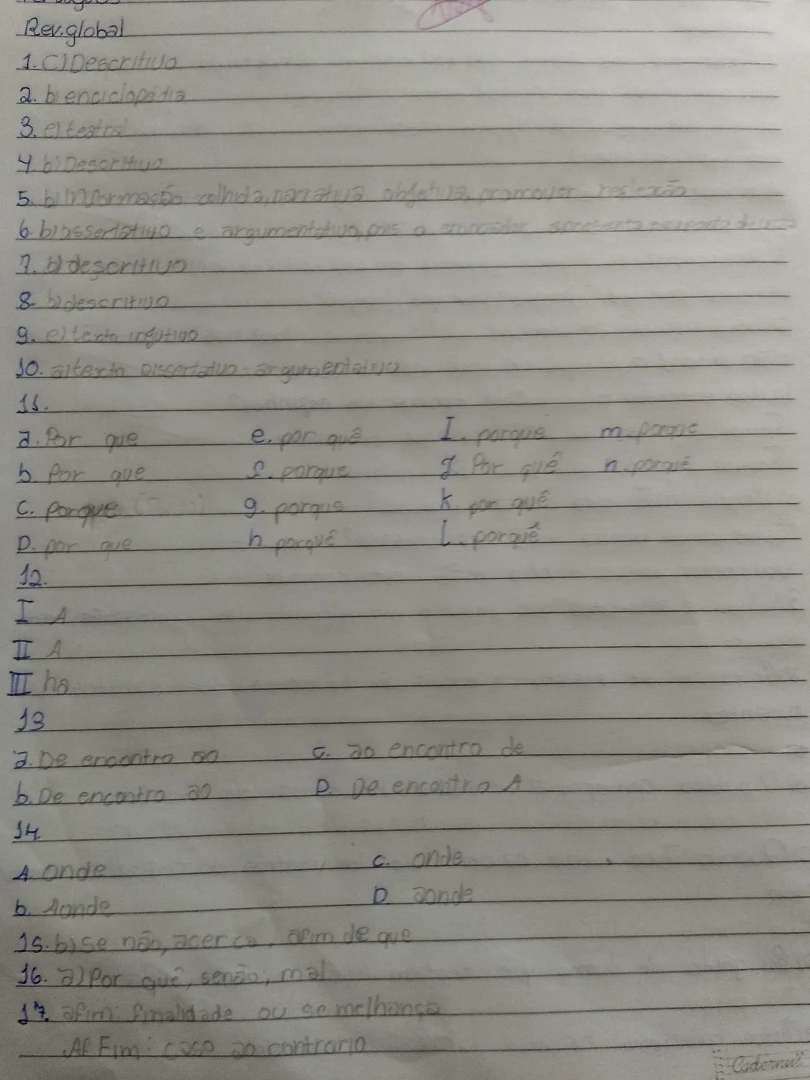 Rev.global
1. C) Descritivo
2. b) enciclopédia
3. e) teatral
4 b) Descritivo
5. b) Informação colhida, narrativa objetiva, promover reflexão
6 b) e argumentativo, pois o enunciador apresenta
7. b) descritivo
8 b) descritivo
9. e) texto
10. a) texto Dissertativo-argumentativo
11.
a. Por que e. por quê I. porque m. porque
b. Por que f. porque J Por quê n. porquê
C. porque g. porque K por quê
D. por que h. porquê L. porquê
12.
I A
II A
III há
13
a. De encontro ao c. ao encontro de
b. De encontro ao D. De encontro A
14.
A. onde c. onde
b. Aonde D. aonde
15. b) se não, acerca, afim de que
16. a) Por quê, senão, mal
17. afim: finalidade ou semelhança
Af Fim: caso ao contrario